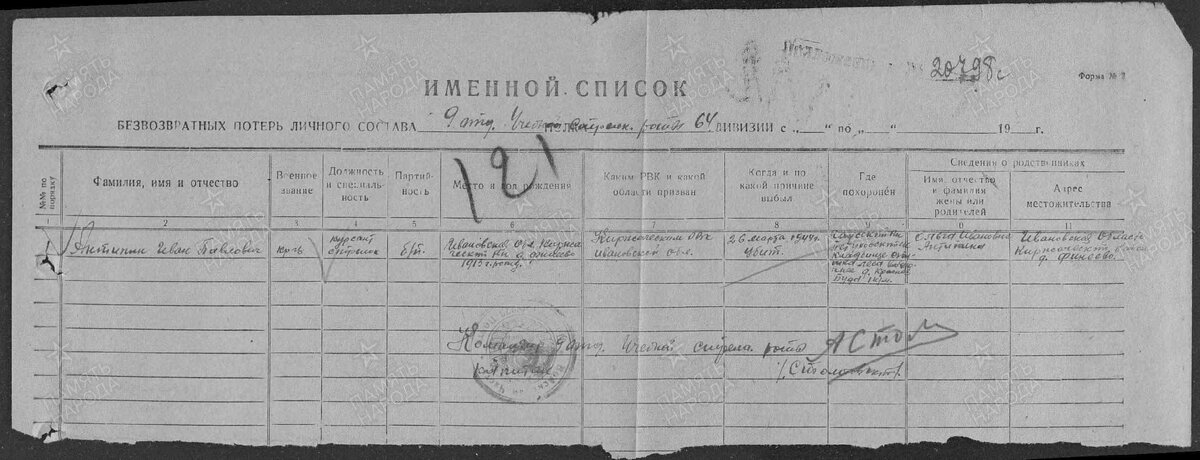 20798с
Форма № 2
ИМЕННОЙ СПИСОК
БЕЗВОЗВРАТНЫХ ПОТЕРЬ ЛИЧНОГО СОСТАВА 9 отд. Учебной роты 64 ДИВИЗИИ с „ “ по „ “ 19 г.
121
№№ по порядку
Фамилия, имя и отчество
Военное звание
Должность и специальность
Партийность
Место и год рождения
Каким РВК и какой области призван
Когда и по какой причине выбыл
Где похоронен
Сведения о родственниках
Имя, отчество и фамилия жены или родителей
Адрес местожительства
1 2 3 4 5 6 7 8 9 10 11
1 Антипин Иван Павлович
кр-ц
курсант
б/п
Ивановская обл. Киржа
1913 г. рожд.
Киржачским РВК
Ивановской обл.
26 марта 1944 г.
убит
кладбище
леса
д. Красная
Буда 1 км.
Ольга Ивановна
Антипина
Ивановская область
Киржачский район
д. Финеево
Командир 9 отд. Учебной стрелк. роты
капитан
ПАМЯТЬ
НАРОДА